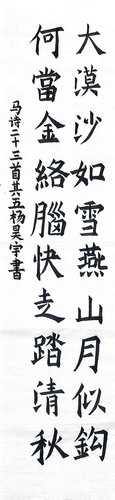 大漠沙如雪燕山月似鈎
何當金絡腦快走踏清秋
马诗二十三首其五杨昊宇書